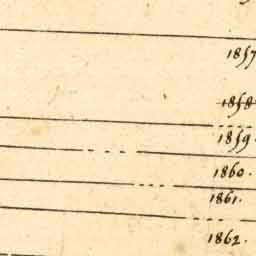 1857
1858
1859.
1860.
1861.
1862.